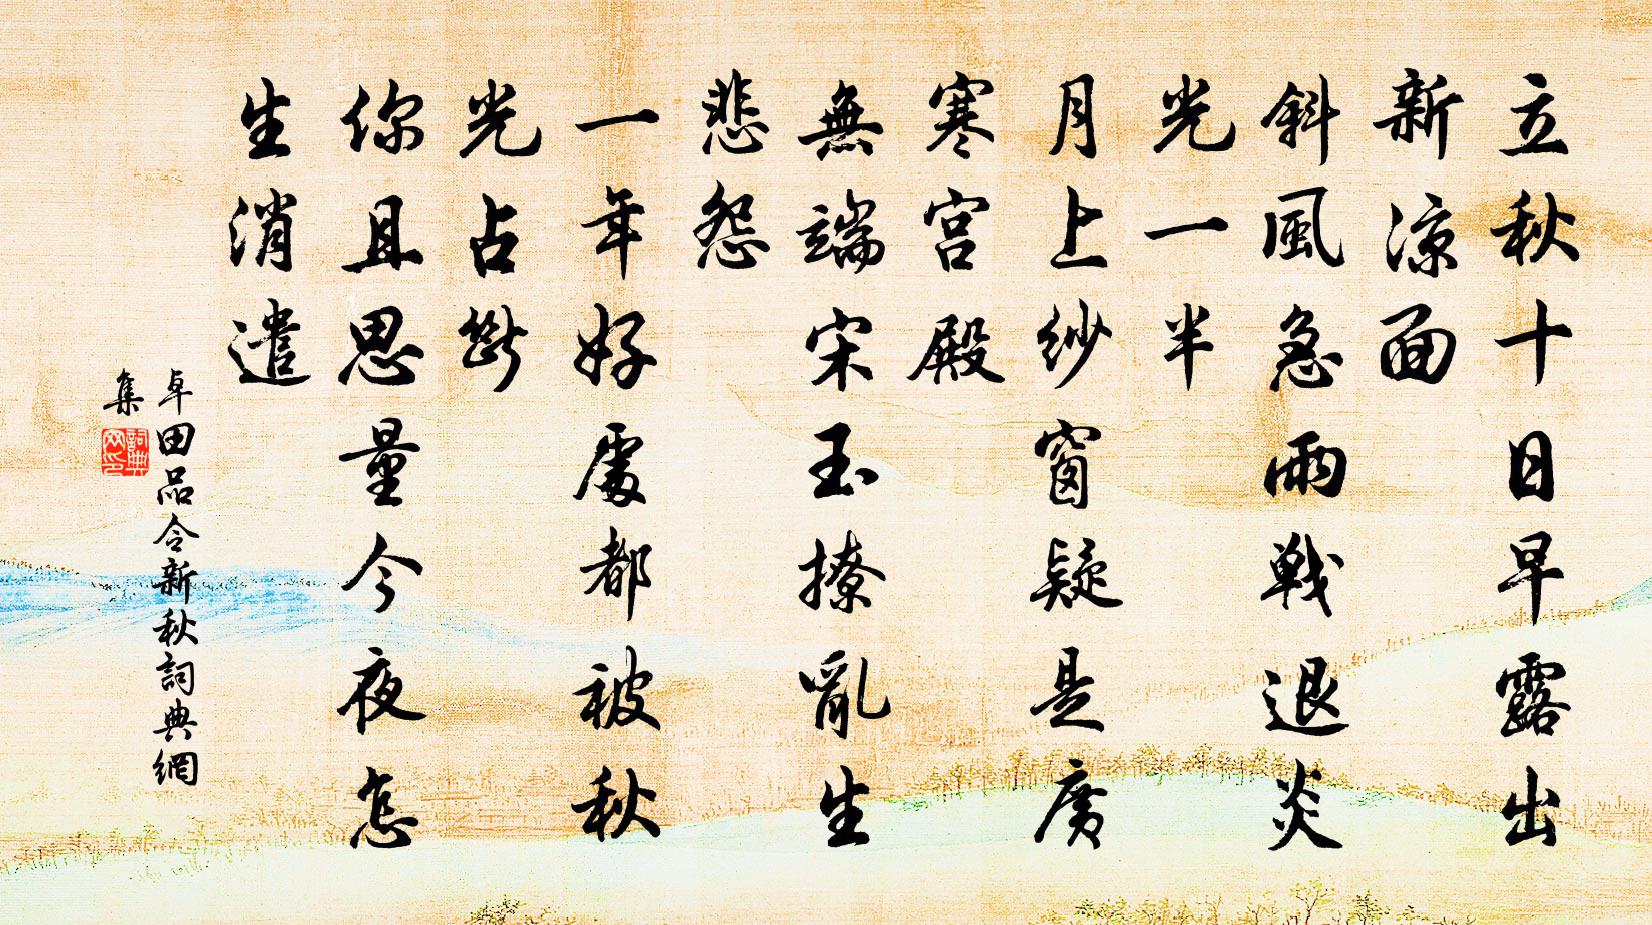 立秋十日早露出
新涼面
斜風急雨戰退炎
光一半
月上紗窗疑是廣
寒宮殿
無端宋玉撩亂生
悲怨
一年好處都被秋
光占斷
你且思量今夜怎
生消遣
卓田品令新秋詞典網
集
詞典
网印